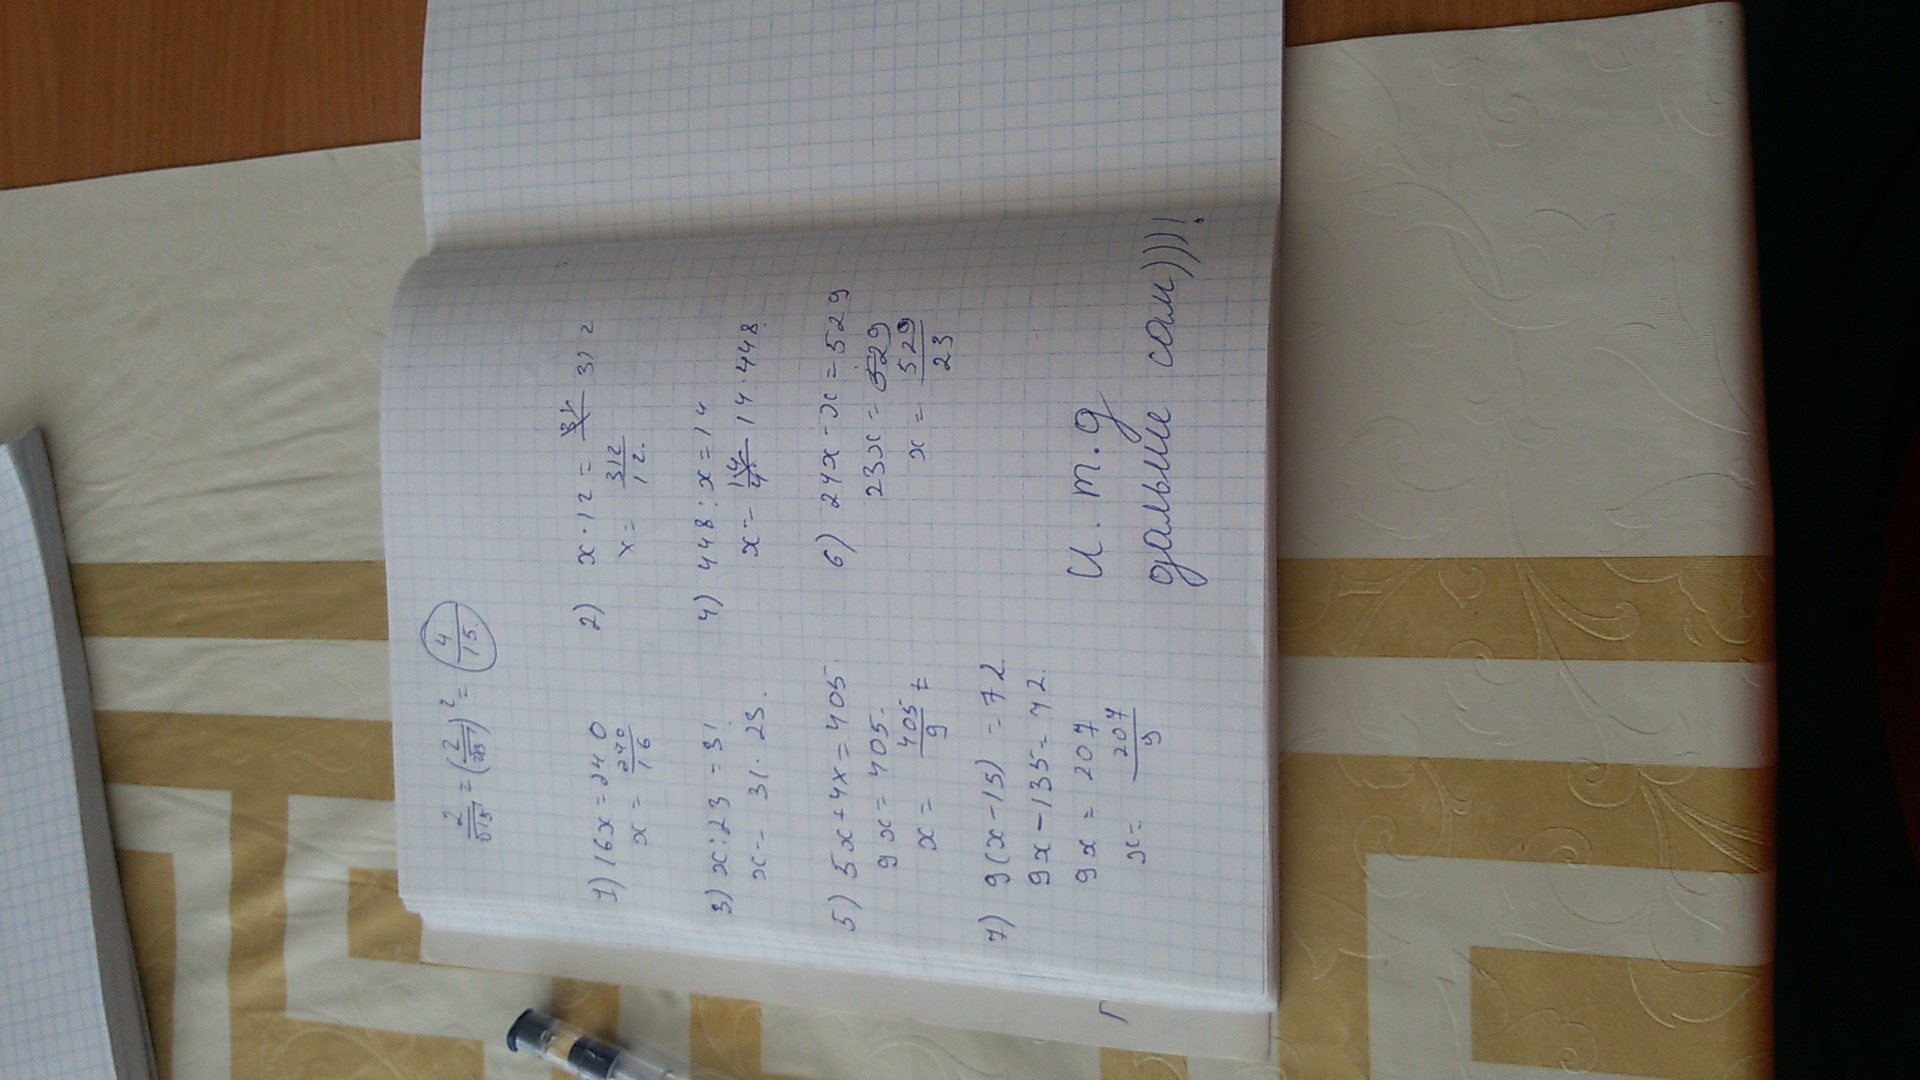 2/√15 = (2/√15)² = 4/15.
1) 16x = 240
x = 240/16
2) x · 12 = 312
x = 312/12.
3) x : 23 = 31
x = 31 · 23.
4) 448 : x = 14
x = 14 · 448
5) 5x + 4x = 405
9x = 405.
x = 405/9
6) 24x - x = 529
23x = 529
x = 529/23
7) 9(x - 15) = 72
9x - 135 = 72.
9x = 207
x = 207/9
и.т.д
дальше сам)))!